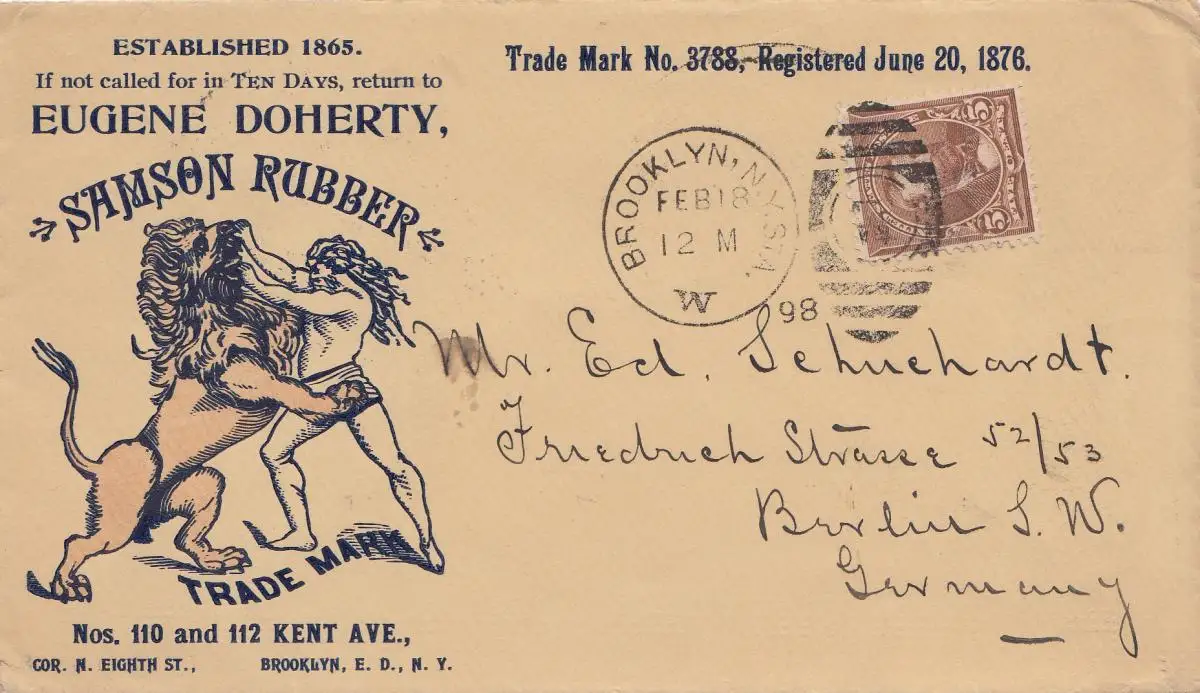 ESTABLISHED 1865.
If not called for in TEN DAYS, return to
EUGENE DOHERTY,
SAMSON RUBBER
TRADE MARK
Nos. 110 and 112 KENT AVE.,
COR. N. EIGHTH ST., BROOKLYN, E. D., N. Y.
Trade Mark No. 3788, Registered June 20, 1876.
BROOKLYN, N.Y. STA.
FEB 18
12 M
W
98
5 5
Mr. Ed. Schuchardt.
Friedrich Strasse 52/53
Berlin S. W.
Germany